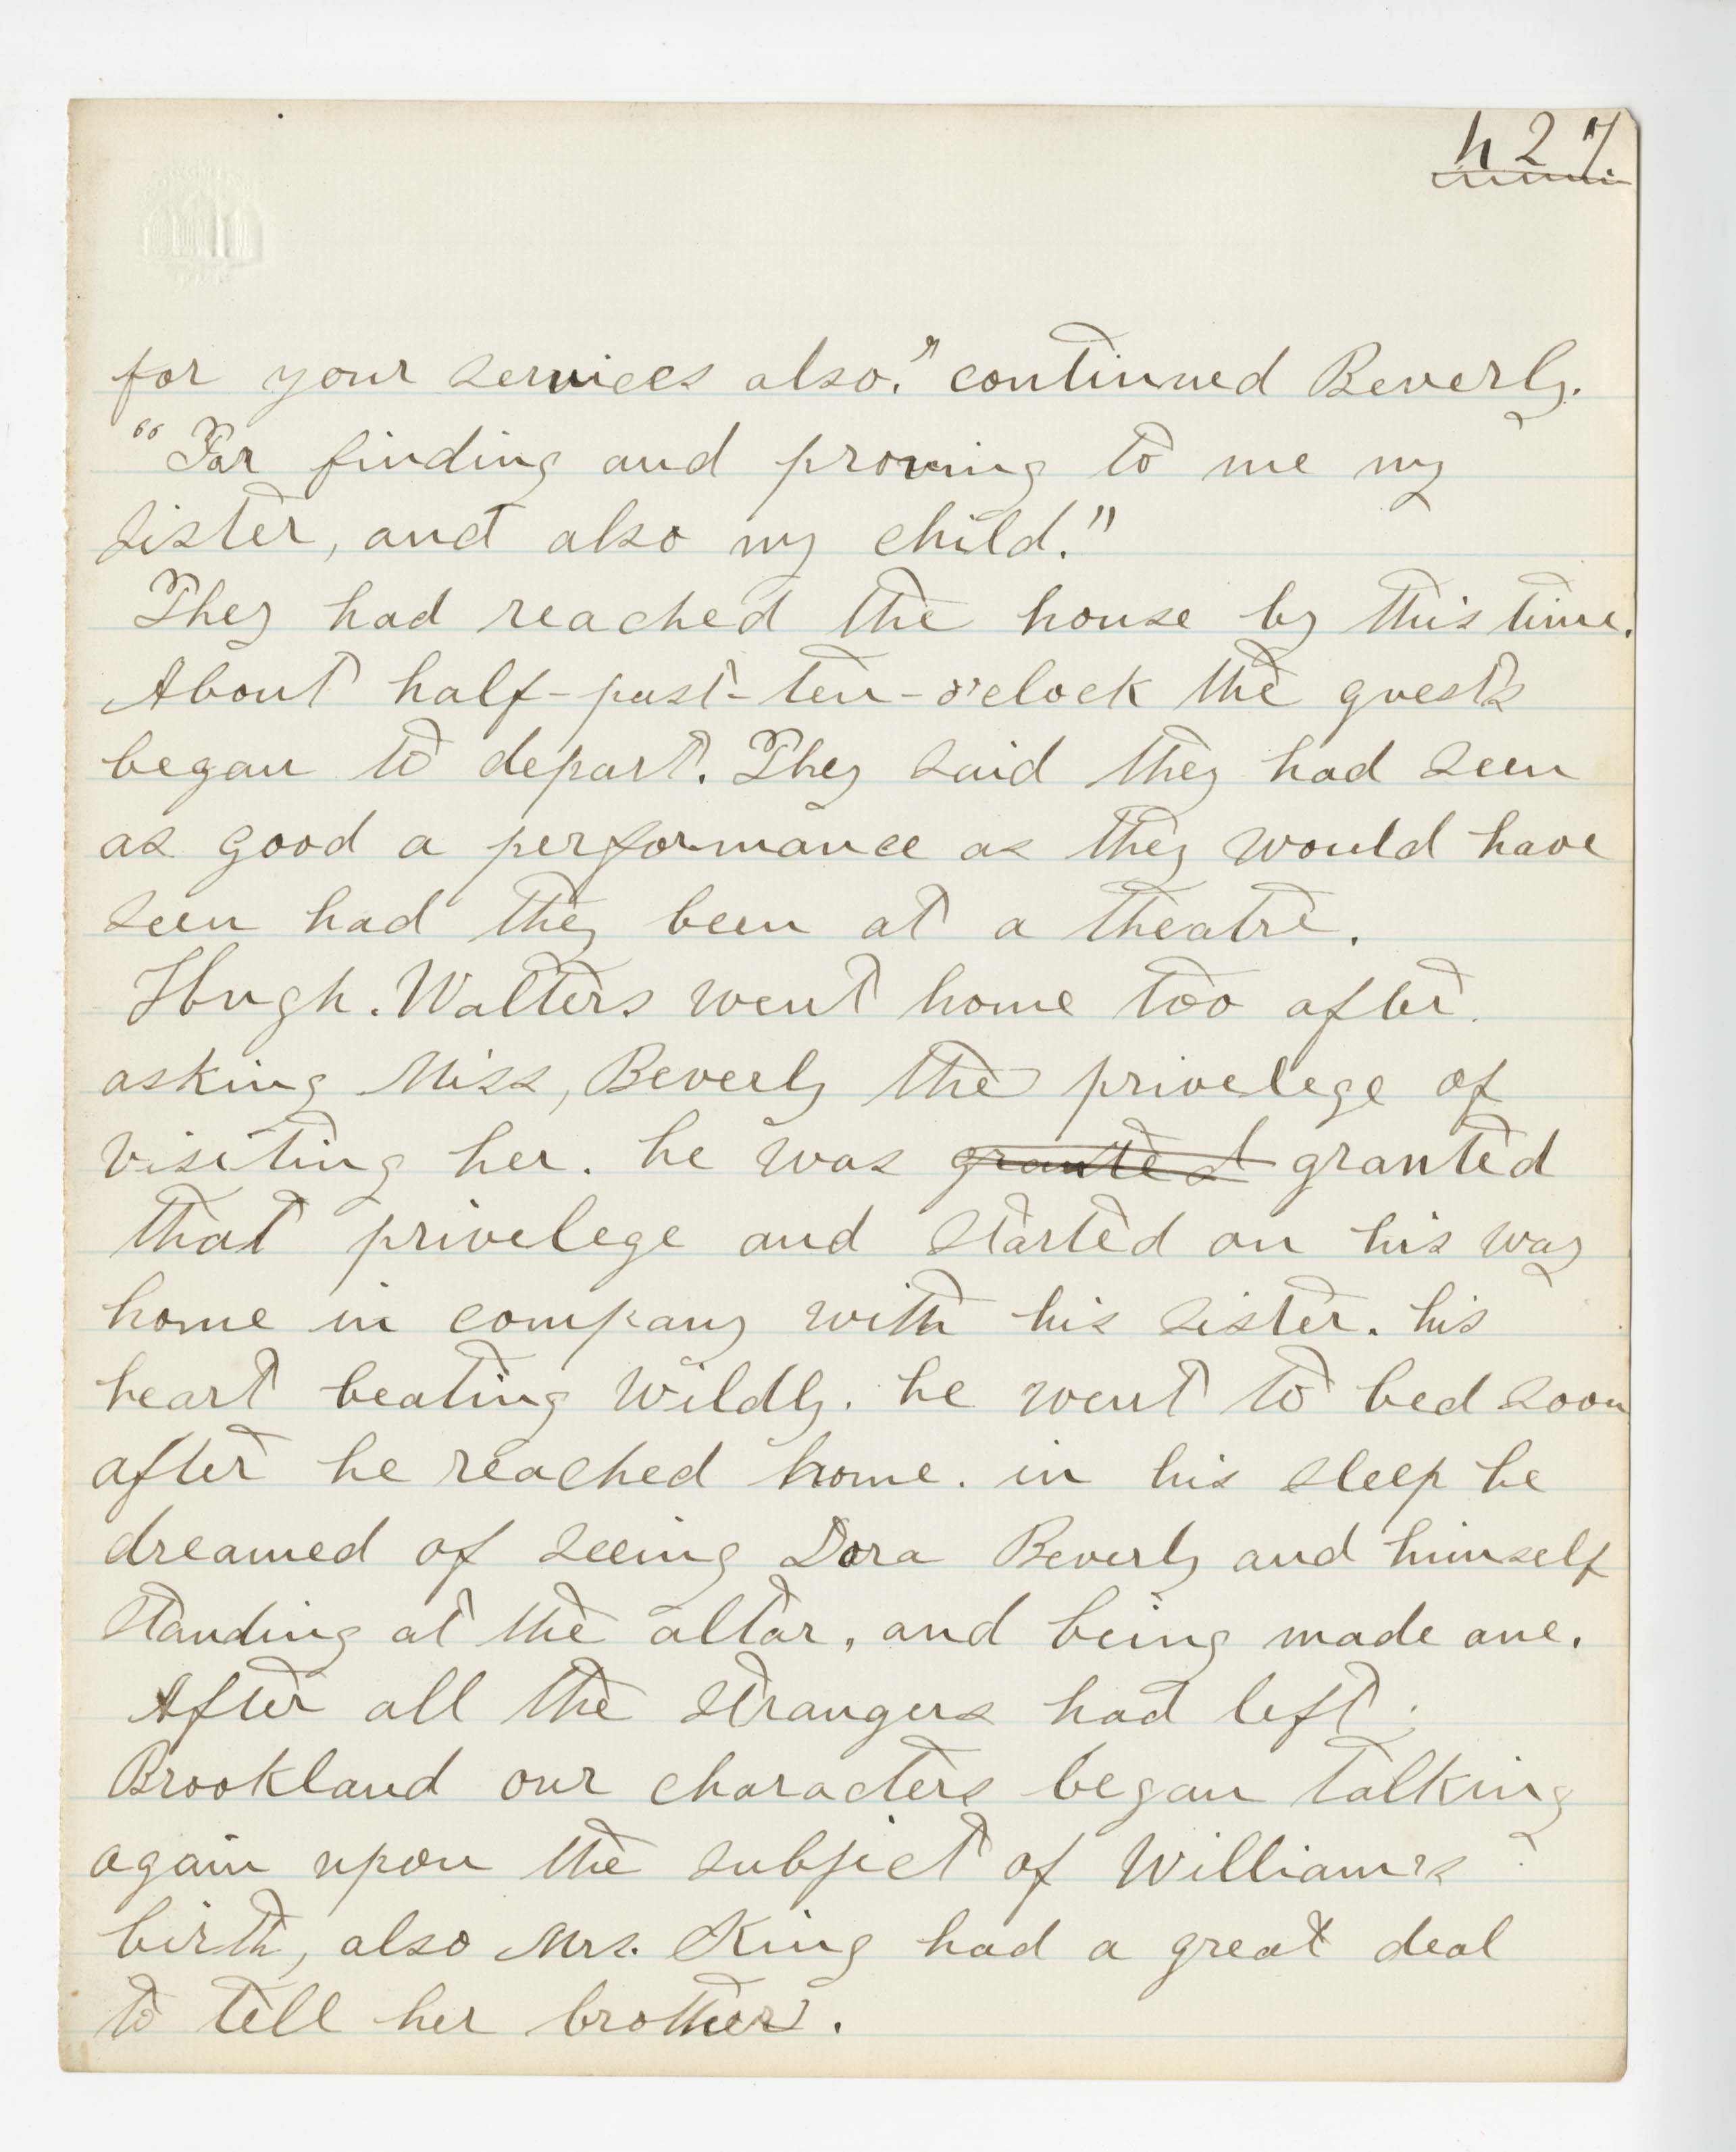 427
for your services also." continued Beverly.
"For finding and proving to me my
sister, and also my child."
They had reached the house by this time.
About half-past-ten-o'clock the guests
began to depart. They said they had seen
as good a performance as they would have
seen had they been at a theatre.
Hugh. Walters went home too after.
asking Miss, Beverly the privelege of
visiting her. he was granted granted
that privelege and started on his way
home in company with his sister. his
heart beating wildly. he went to bed soon
after he reached home. in his sleep he
dreamed of seeing Dora Beverly and himself
standing at the altar, and being made one.
After all the strangers had left.
Brookland our characters began talking
again upon the subject of William's
birth, also Mrs. King had a great deal
to tell her brother.